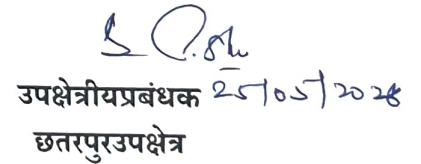 उपक्षेत्रीयप्रबंधक 25/05/2026
छतरपुरउपक्षेत्र